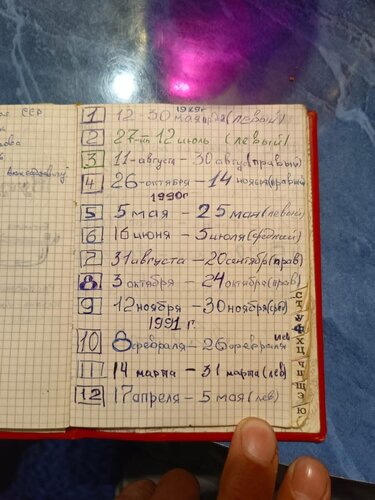 ССР
1989г
1 12 30 мая (левый)
2 27 - 12 июль (левый)
3 11 августа - 30 авгу(правый)
4 26 -октября - 14 ноября(правый)
1990г
5 5 мая - 25 мая(левый)
6 16 июня - 5 июля(средний)
7 31 августа - 20 сентября(прав)
8 3 октября - 24 октября(прав)
9 12 ноября - 30 ноября(сред)
1991 г.
10 8 февраля - 26 февраля лев
11 14 марта - 31 марта(лев)
12 17 апреля - 5 мая(лев)
С
Т
У
Ф
Х
Ц
Ч
Щ
Э
Ю